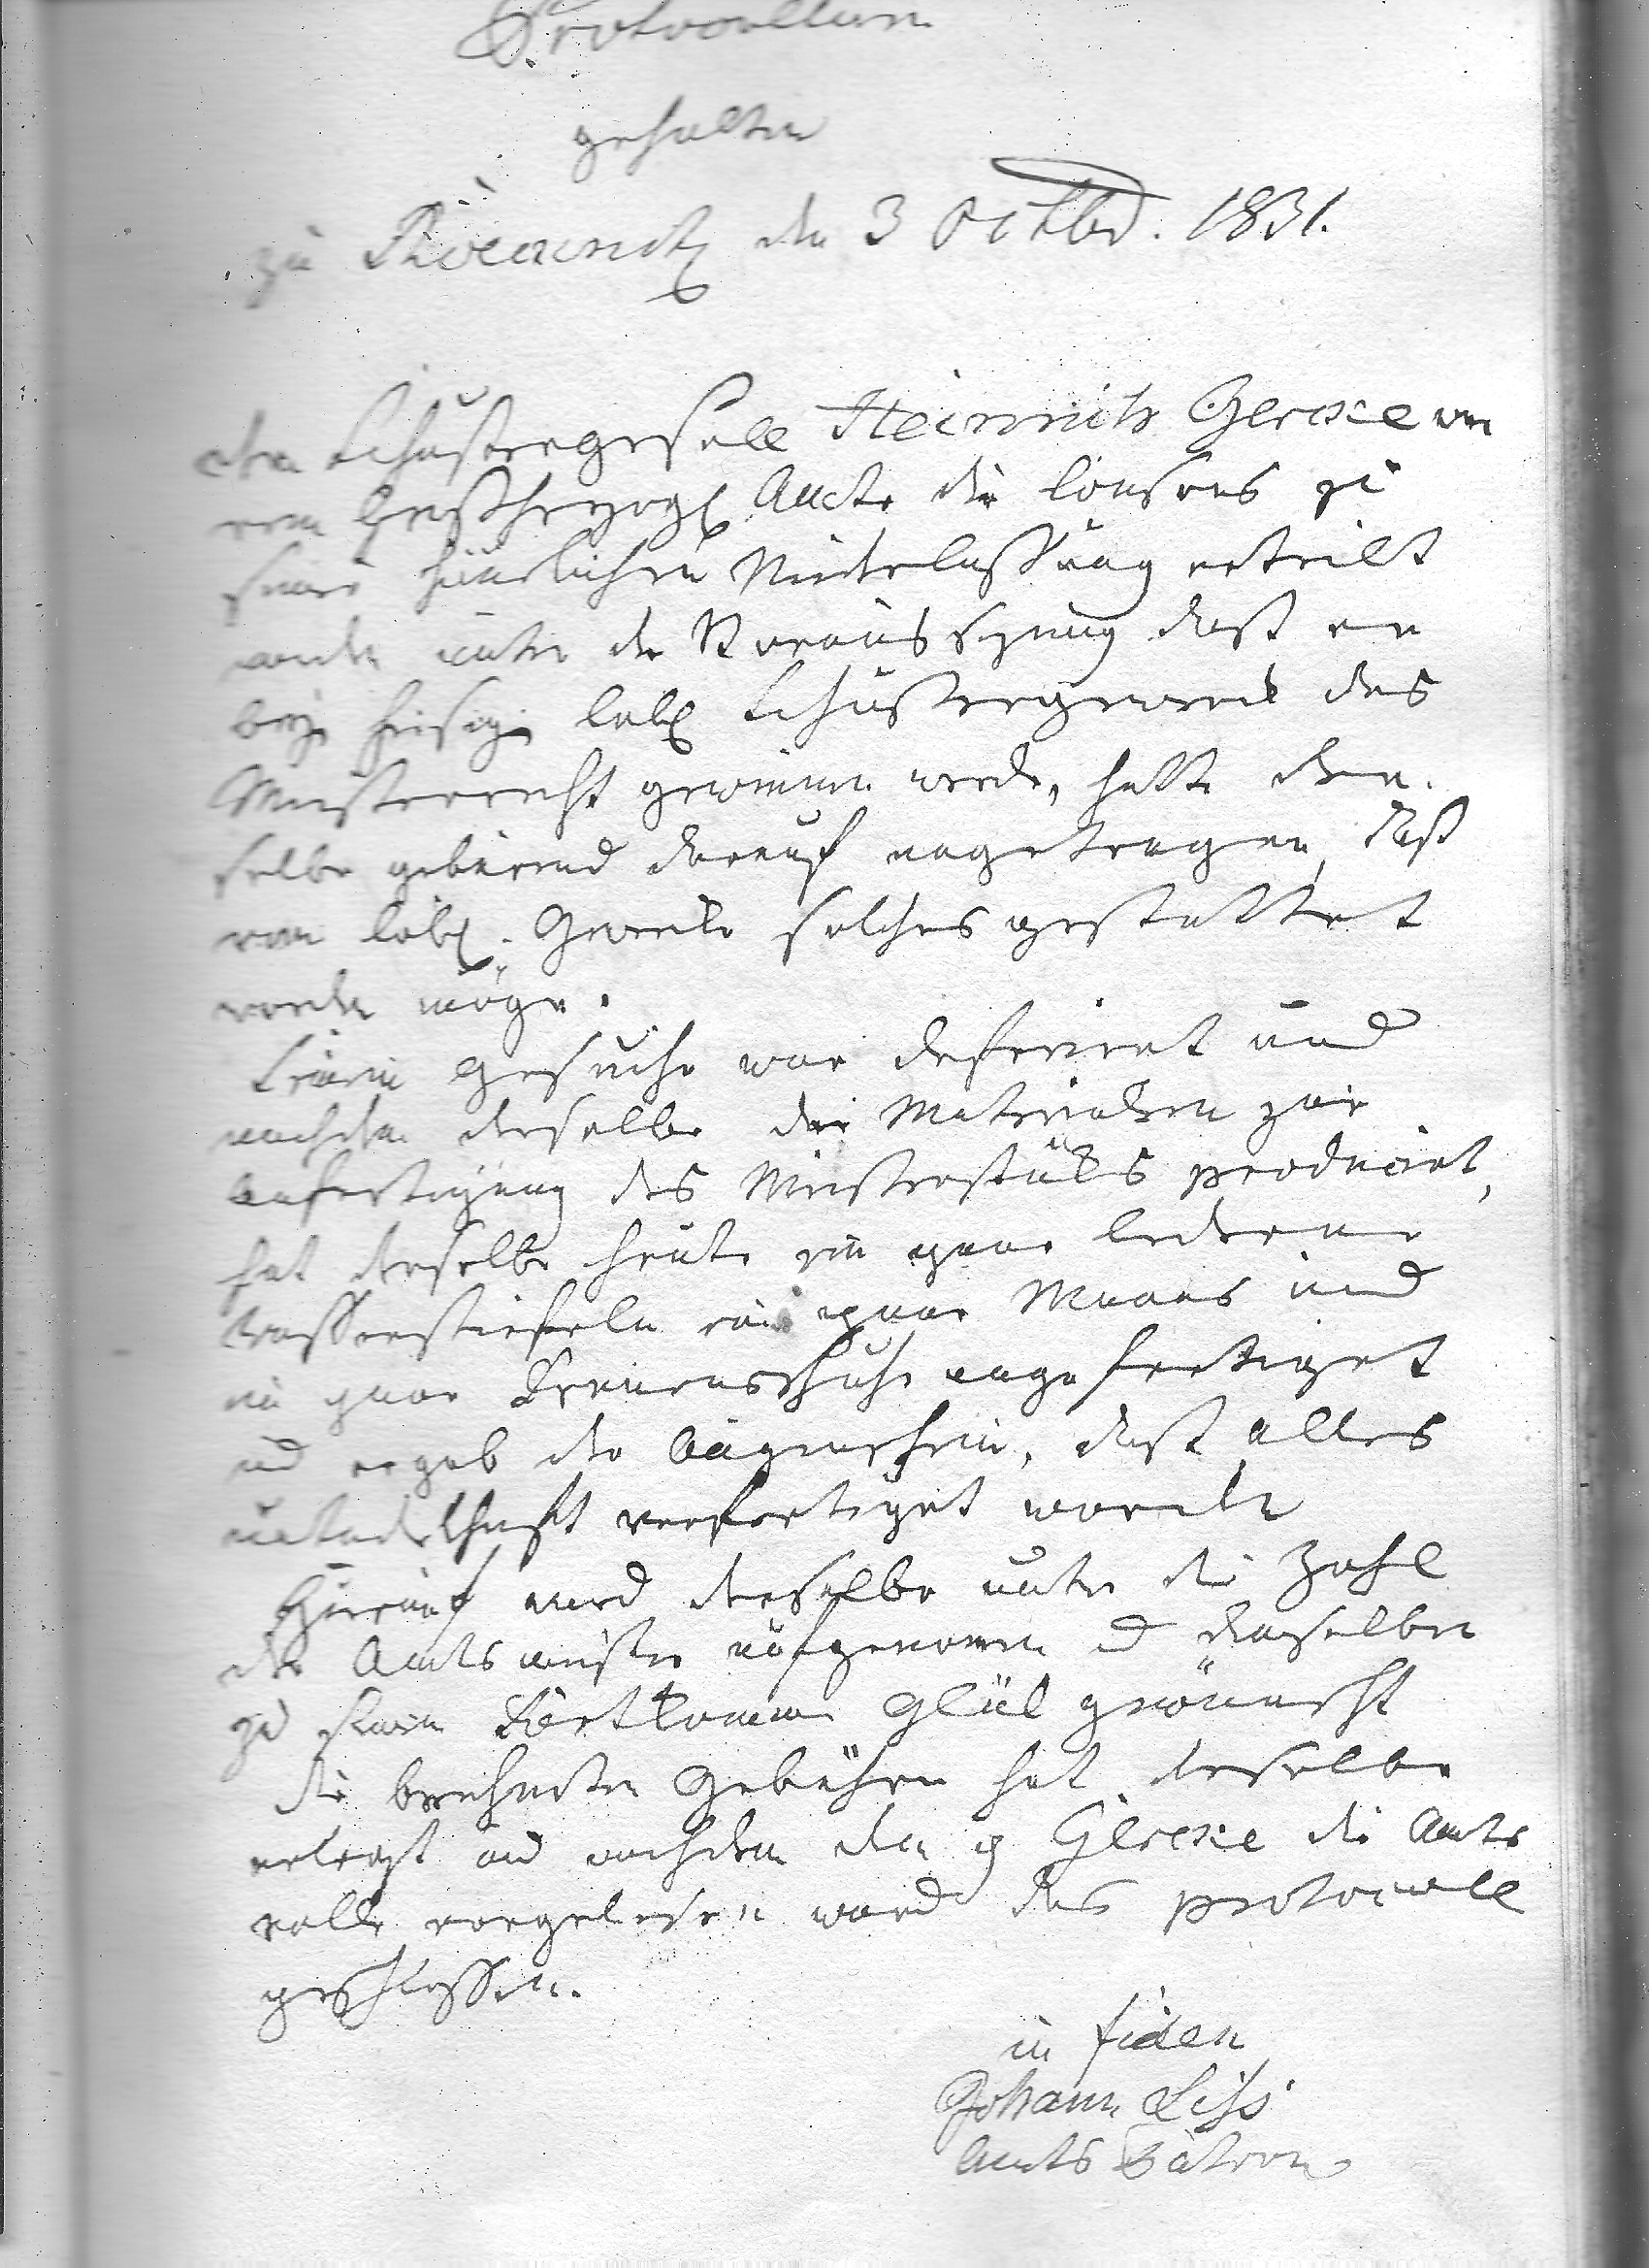 Protocollum
gehalten
zu Ribnitz den 3 Octbr. 1831.
dem Schustergesell Heinrich Gercke von
vom Großherzogl Amte die Consens zu
seiner häuslichen Niederlassung erteilt
worden unter der Voraussetzung daß er
bey hiesige löbl Schustergewerk das
Meisterrecht gewinnen werde, hatte der-
selbe gebürend darauf angetragen, daß
vom löbl. Gewerke solches gestattet
werden möge.
Seinem Gesuche war deferiret und
nachdem derselbe die Materialien zur
Anfertigung des Meisterstüks produciret,
hat derselbe heute ein paar lederne
Wasserstiefeln ein paar Manns und
ein paar Frauenschuhe angefertiget
und ergab der Augenschein, daß alles
untadelhaft verfertiget worden
Hierauf ward derselbe unter die Zahl
der Amtsmeister aufgenommen und demselben
zu seinem Fortkommen Glük gewünscht
die berechneten Gebühren hat derselbe
erlegt und nachdem dem g Gercke die Amts
rolle vorgelesen ward das protocoll
geschlossen.
in fidem
Johann
Amts Patron